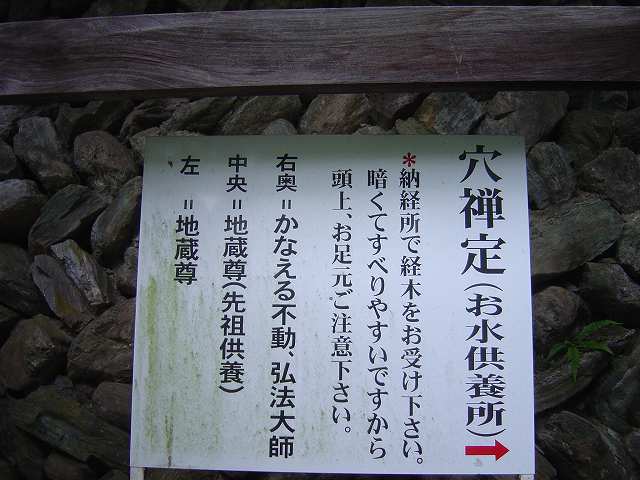 穴禅定(お水供養所)→
*納経所で経木をお受け下さい。
暗くてすべりやすいですから
頭上、お足元ご注意下さい。
右奥=かなえる不動、弘法大師
中央=地蔵尊(先祖供養)
左 =地蔵尊